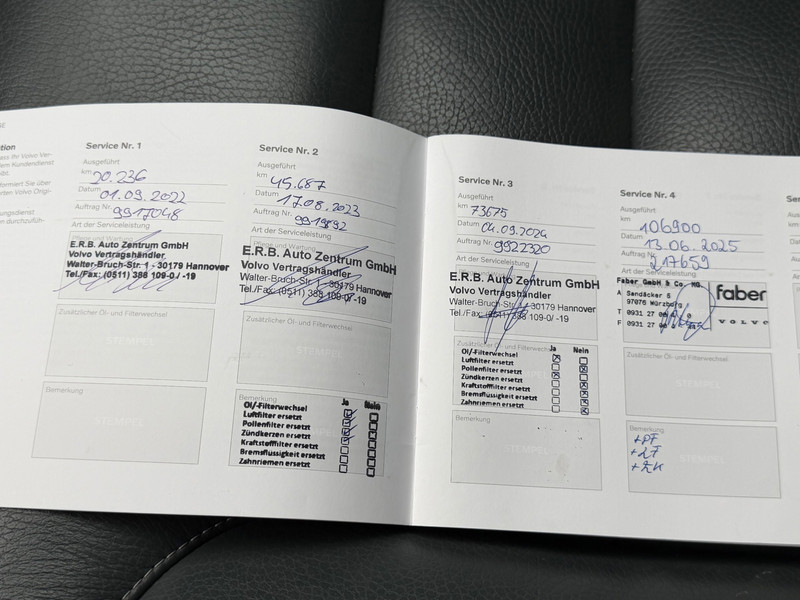 Service Nr. 1
Ausgeführt
km 20.236
Datum 01.09.2022
Auftrag Nr. 9917048
Art der Serviceleistung
Pflege und Wartung
E.R.B. Auto Zentrum GmbH
Volvo Vertragshändler
Walter-Bruch-Str. 1 - 30179 Hannover
Tel./Fax: (0511) 388 109-0 / -19
Zusätzlicher Öl- und Filterwechsel
STEMPEL
Bemerkung
Service Nr. 2
Ausgeführt
km 45.687
Datum 17.08.2023
Auftrag Nr. 9919892
Art der Serviceleistung
Pflege und Wartung
E.R.B. Auto Zentrum GmbH
Volvo Vertragshändler
Walter-Bruch-Str. 1 - 30179 Hannover
Tel./Fax: (0511) 388 109-0/ -19
Zusätzlicher Öl- und Filterwechsel
STEMPEL
Bemerkung
Ja Nein
Öl/-Filterwechsel
Luftfilter ersetzt
Pollenfilter ersetzt
Zündkerzen ersetzt
Kraftstofffilter ersetzt
Bremsflüssigkeit ersetzt
Zahnriemen ersetzt
Service Nr. 3
Ausgeführt
km 73675
Datum 04.09.2024
Auftrag Nr. 9922320
Art der Serviceleistung
E.R.B. Auto Zentrum GmbH
Volvo Vertragshändler
Walter-Bruch-Str. 1 - 30179 Hannover
Tel./Fax: (0511) 388 109-0/ -19
Zusätzlicher Öl- und Filterwechsel
Ja Nein
Öl/-Filterwechsel
Luftfilter ersetzt
Pollenfilter ersetzt
Zündkerzen ersetzt
Kraftstofffilter ersetzt
Bremsflüssigkeit ersetzt
Zahnriemen ersetzt
Bemerkung
STEMPEL
Service Nr. 4
Ausgeführt
km 106900
Datum 13.06.2025
Auftrag Nr. 217659
Art der Serviceleistung
Faber GmbH & Co. KG
A Sandäcker 5
97076 Würzburg
T 0931 27
F 0931 27
faber
VOLVO
Zusätzlicher Öl- und Filterwechsel
STEMPEL
Bemerkung
+PF
+LF
+ZK
STEMPEL
Service
Ausgeführt
km
Datum
Auftrag
Art der